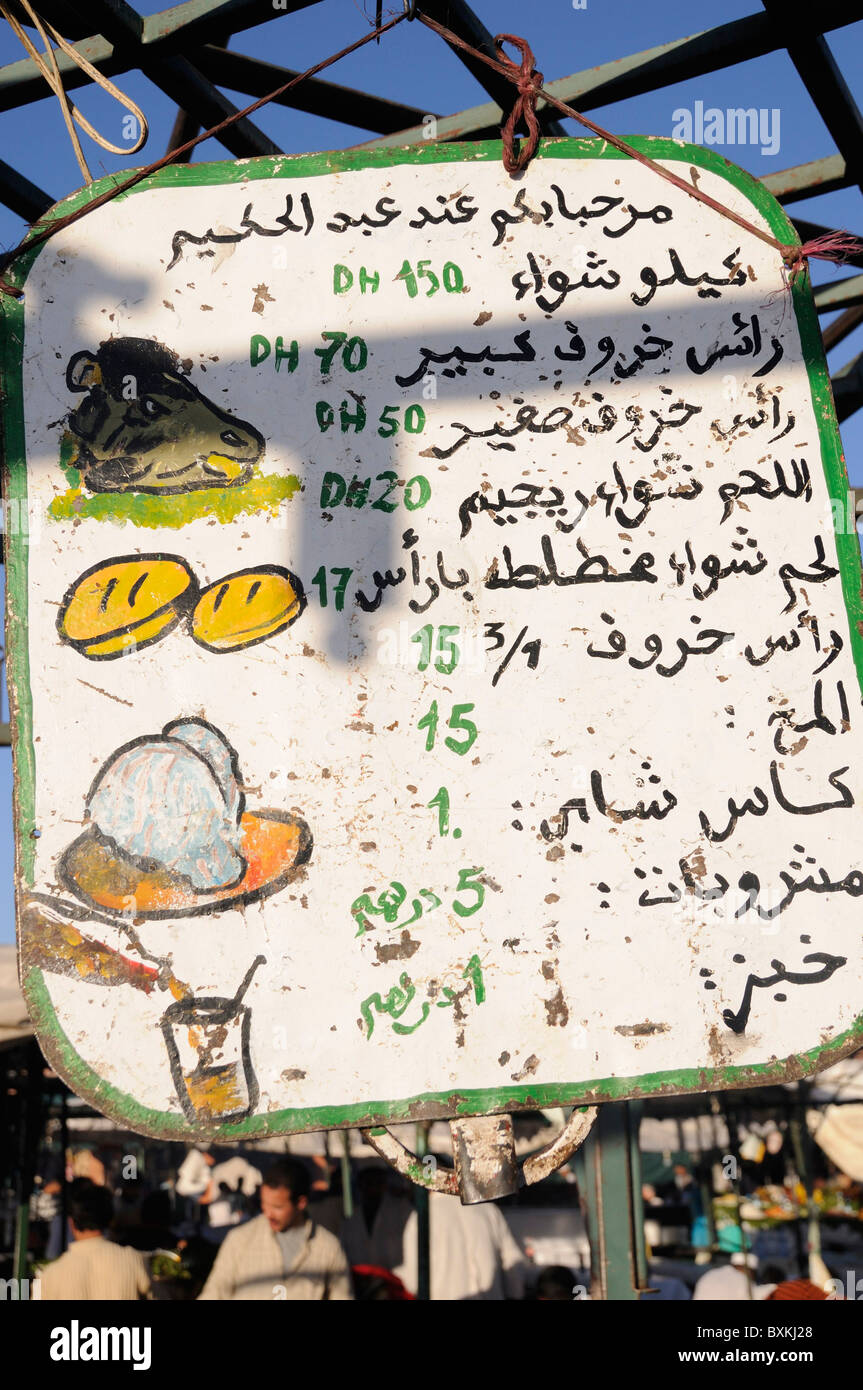 مرحبا بكم عند عبد الحكيم
كيلو شواء 150 DH
رائس خروف كبير 70 DH
رأس خروف صغير 50 DH
اللحم شواء ريجيم 20 DH
لحم شواء مخطلطه بارأس 17
رأس خروف 3/1 15
المخ : 15
كاس شاي : 1.
مشروبات : 5 درهم
خبز : 1 درهم
alamy
Image ID: BXKJ28
www.alamy.com